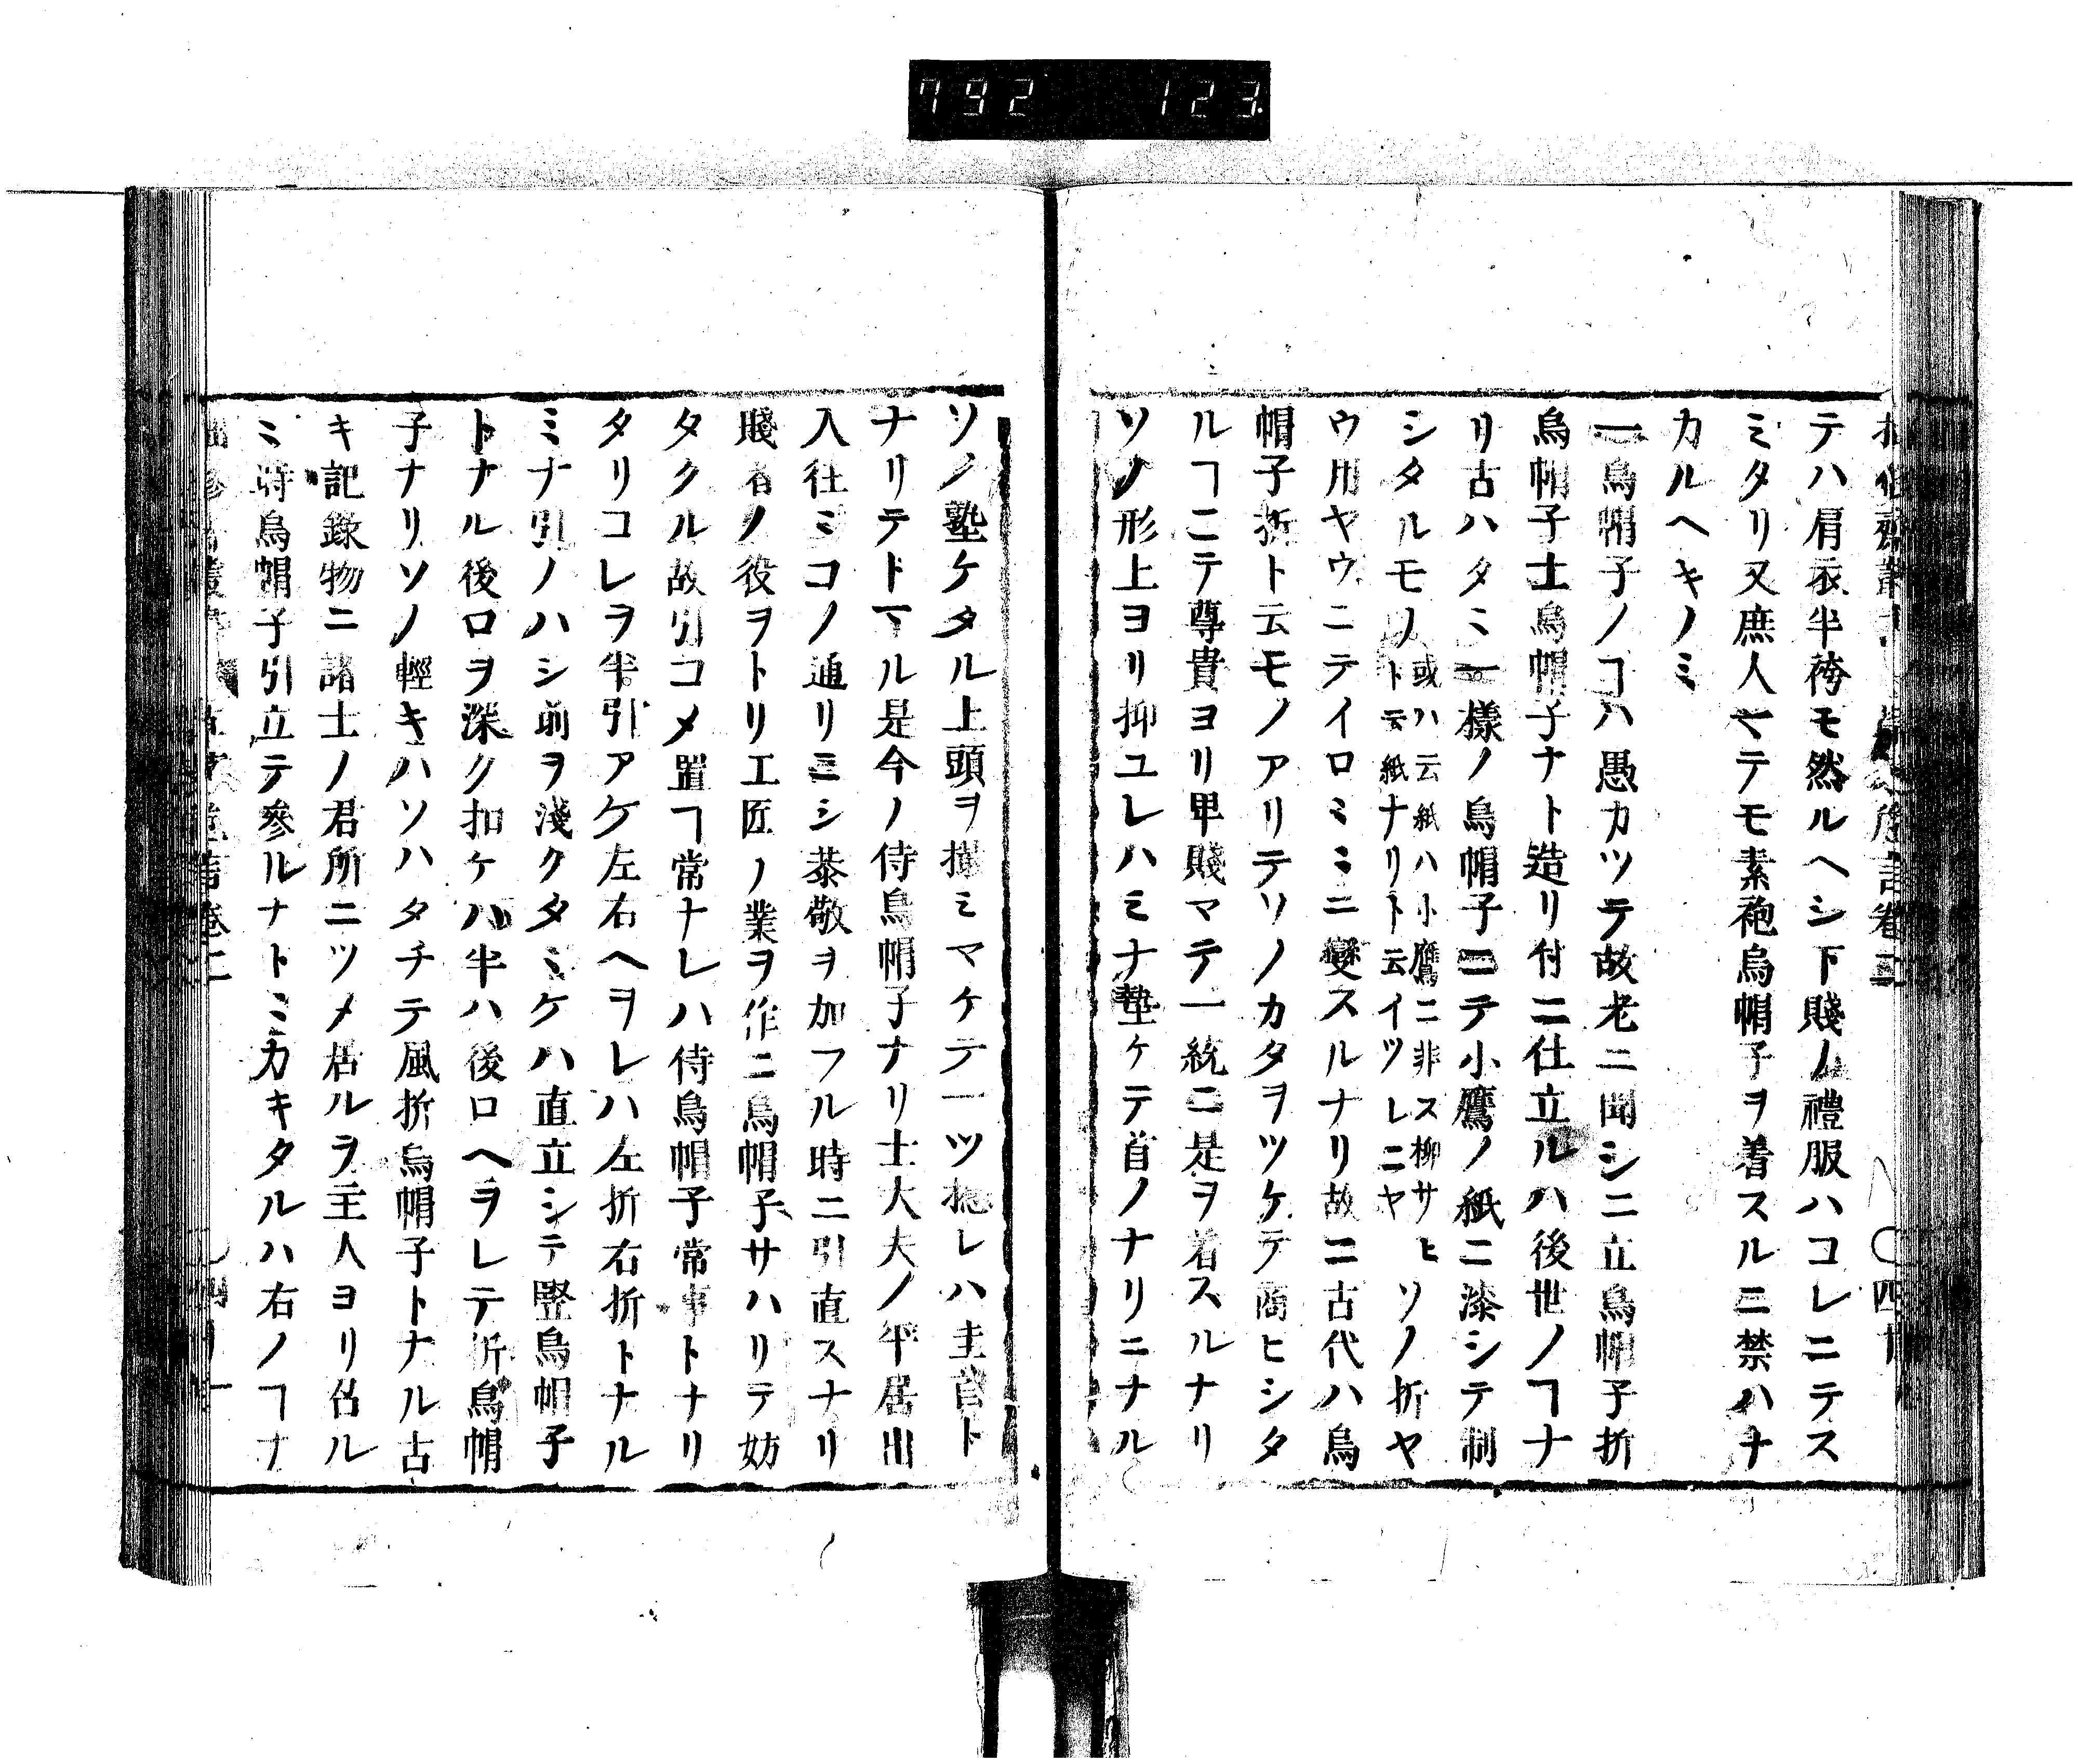 792 123
テハ肩衣半袴モ然ルヘシ下賤ノ禮服ハコレニテス
ミタリ又庶人マテモ素袍烏帽子ヲ着スルニ禁ハナ
カルヘキノミ
一烏帽子ノヿハ愚カツテ故老ニ聞シニ立烏帽子折
烏帽子士烏帽子ナト造リ付ニ仕立ルハ後世ノヿナ
リ古ハタミ一樣ノ烏帽子ニテ小鷹ノ紙ニ漆シテ制
シタルモノ或ハ云紙ハ小鷹ニ非ス柳サヒト云紙ナリト云イツレニヤソノ折ヤ
ウ用ヤウニテイロミミニ變スルナリ故ニ古代ハ烏
帽子折ト云モノアリテソノカタヲツケテ商ヒシタ
ルヿニテ尊貴ヨリ甲賤マテ一統ニ是ヲ着スルナリ
ソノ形上ヨリ抑ユレハミナ墊ケテ首ノナリニナル
ソノ墊ケタル上頭ヲ撮ミマケテ一ツ捻レハ圭首ト
ナリテトマル是今ノ侍烏帽子ナリ士大夫ノ平居出
入往ミコノ通リミシ恭敬ヲ加フル時ニ引直スナリ
賤者ノ役ヲトリ工匠ノ業ヲ作ニ烏帽子サハリテ妨
タクル故引コメ置ヿ常ナレハ侍烏帽子常事トナリ
タリコレヲ半引アケ左右ヘヲレハ左折右折トナル
ミナ引ノハシ前ヲ淺クタミケハ直立シテ竪烏帽子
トナル後ロヲ深ク扣ケハ半ハ後ロヘヲレテ折烏帽
子ナリソノ輕キハソハタチテ風折烏帽子トナル古
キ記錄物ニ諸士ノ君所ニツメ居ルヲ主人ヨリ召ル
ミ時烏帽子引立テ參ルナトミカキタルハ右ノヿナ